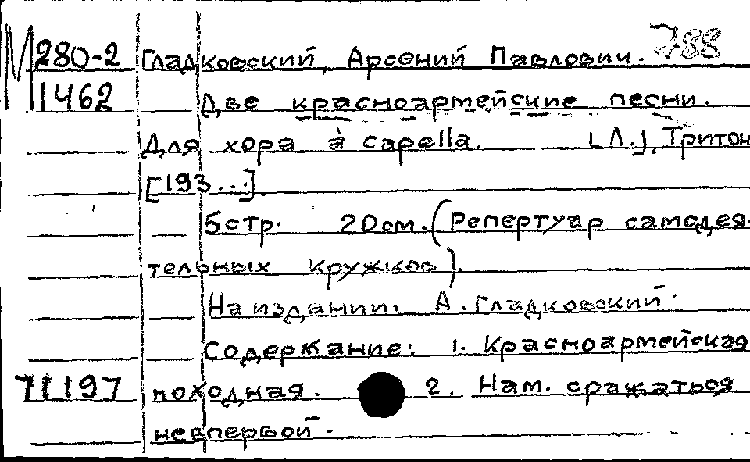 М 280-2 Гладковский, Арсений Павлович. 788
1462 Две красноармейские песни.
Для хора à capella. [Л.], Тритон
[193...].
5 стр. 20 см. (Репертуар самодея-
тельных кружков).
На издании: А. Гладковский.
Содержание: 1. Красноармейская
71197 походная. 2. Нам сражаться
невпервой.